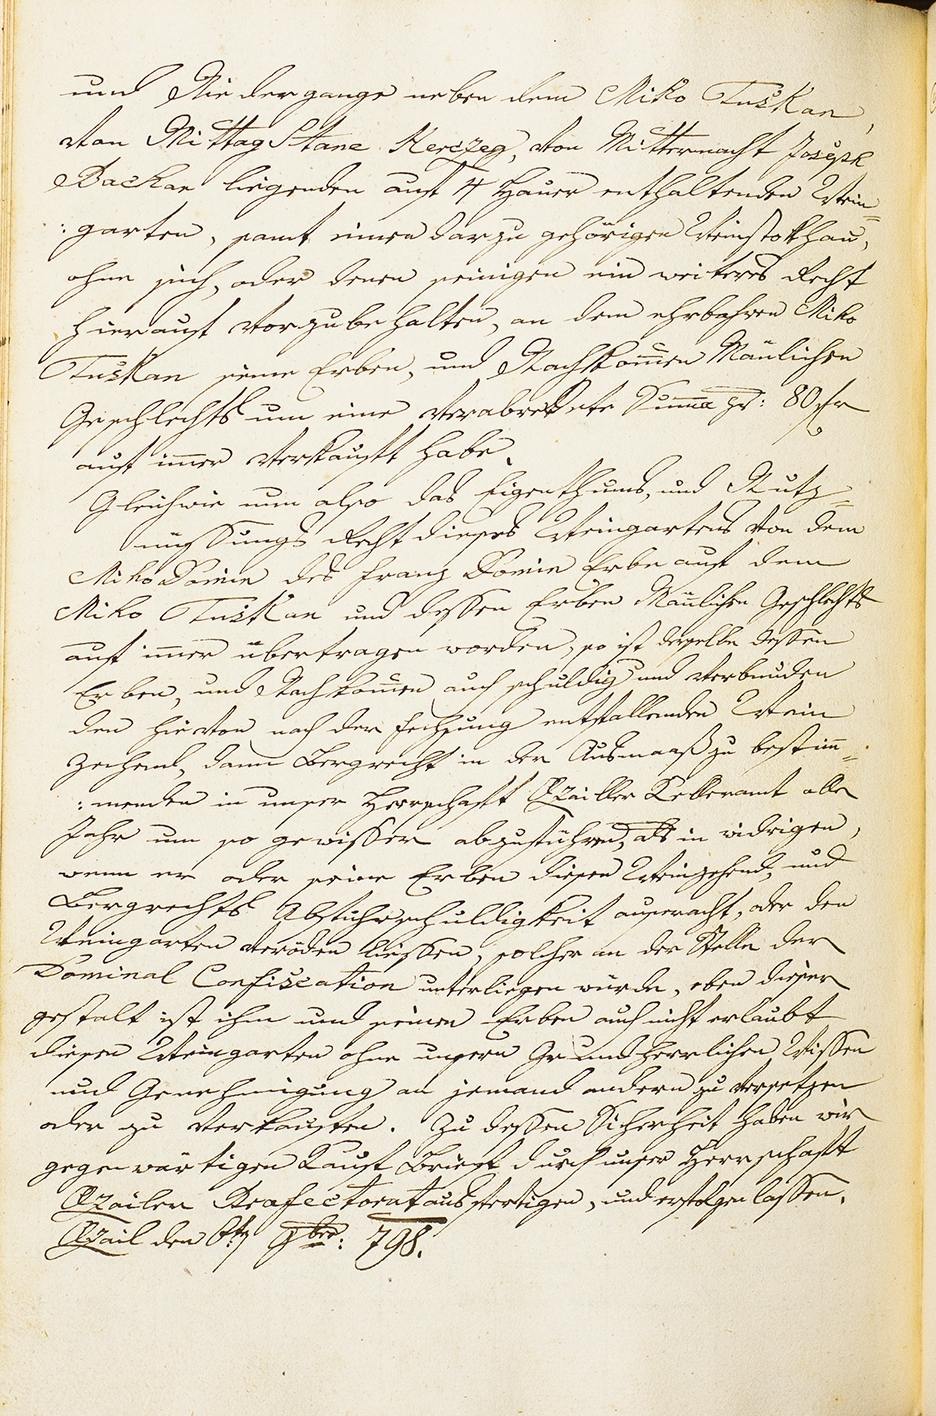 und Niedergange neben dem Miko Tuškan,
von Mittag Stane Herczeg, von Mitternacht Joseph
Backan liegenden auf 4 Hauer enthaltenden Wein=
:garten, samt einen darzu gehörigen Weinstokhau,
ohne sich, oder denen seinigen ein weiteres Recht
hierauf vorzubehalten, an dem ehrbahren Miko
Tuškan seine Erben, und Nachkom̅en Mänlichen
Geschlechts um eine verabredete Summa pr: 80 fr
auf immer verkauft habe.
Gleichwie nun also das Eigenthums, und Nutz=
nüssungs Recht dieses Weingartens von dem
Miko Doinin des Franz Doinin Erbe auf dem
Miko Tuškan und dessen Erben Män̅lichen Geschlechts
auf immer übertragen worden, so ist derselbe dessen
Erben, und Nachkom̅en auch schuldig und verbunden
den hievon nach der Fechsung entfallenden Wein
Zechend, dann Bergrecht in der Ausmaaß zu bestim̅=
:menden in unser Herrschaft Kelleramt alle
Jahr um so gewisser abzuführen, als in widrigen,
wenn er oder seine Erben diesen Weinzehend, und
Bergrechts Abfuhrschuldigkeit auseracht, oder den
Weingarten veröden liessen, solcher an der Stelle der
Dominal Confiscation unterliegen würde, eben dieser
gestalt ist ihm und seinen Erben auch nicht erlaubt
diesen Weingarten ohne unsern Grundherrlichen Wissen
und Genehmigung an jemand andern zu versetzen
oder zu verkaufen. Zu dessen Sicherheit haben wir
gegenwärtigen Kauf Brief durch unser Herrschaft
Prafectorat ausfertigen, und erfolgen lassen.
den 6ten 9ber: 798.